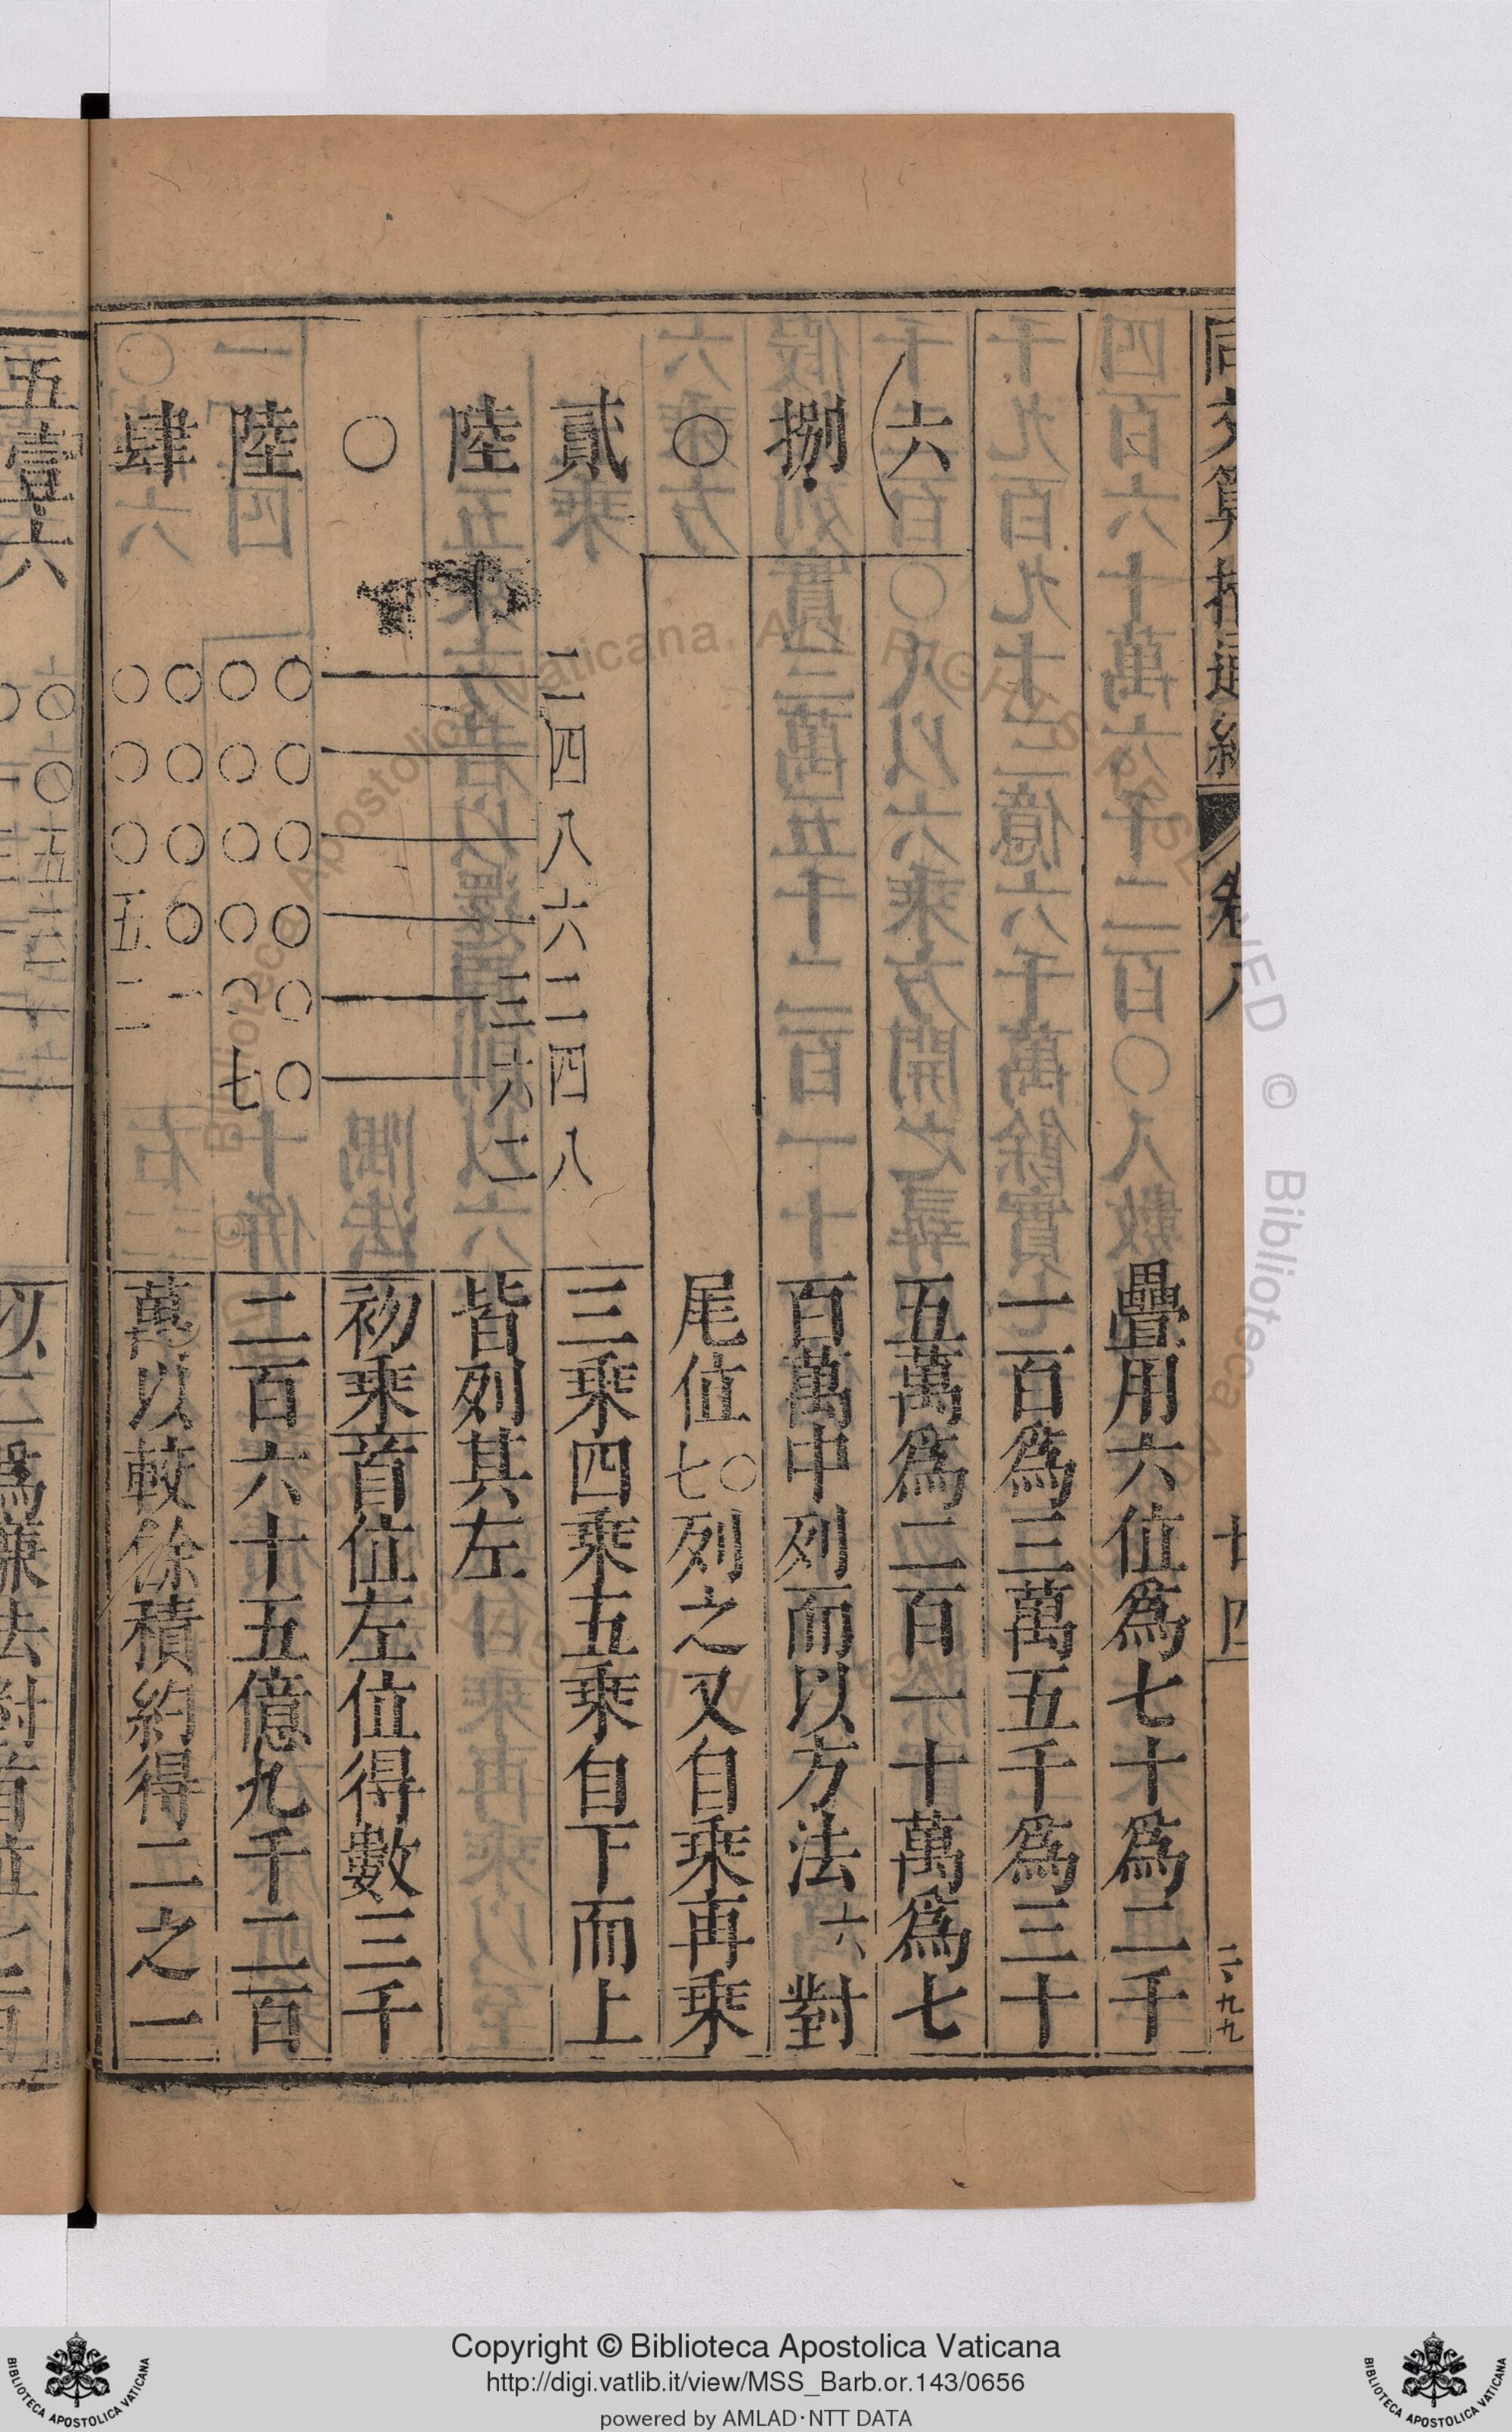 同文算指通編 卷八 廿四
二六九九
疊用六位為七十為二千
一百為三萬五千為三十
(六
五萬為二百一十萬為七
捌
百萬中列而以方法六對
〇
尾位〇七列之又自乘再乘
貳
二四八六二四八
三乘四乘五乘自下而上
陸
一三六二
皆列其左
〇
初乘首位左位得數三千
陸
〇〇〇〇〇〇
〇〇〇〇〇七
二百六十五億九千二百
肆
〇〇〇〇一
〇〇〇五二
萬以較餘積約得二之一
五壹六
Copyright © Biblioteca Apostolica Vaticana
http://digi.vatlib.it/view/MSS_Barb.or.143/0656
powered by AMLAD·NTT DATA
BIBLIOTECA APOSTOLICA VATICANA
BIBLIOTECA APOSTOLICA VATICANA